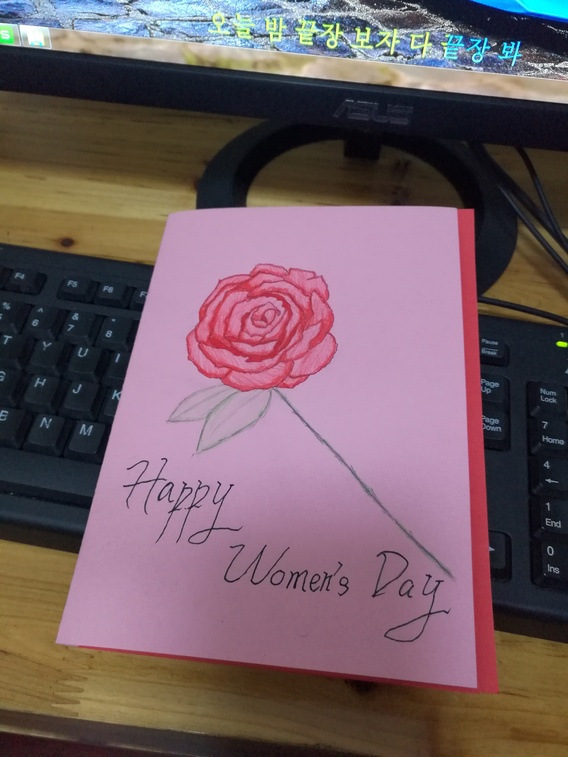 오늘 밤 끝장 보자 다 끝장 봐
ASUS
F4
F5 F6
%
5
^
6
&
7
*
8
T Y U I
G H J K
B N M
Pause
Break
Page
Up
Page
Down
Num
Lock
7
Home
4
←
1
End
0
Ins
Happy
Women's Day